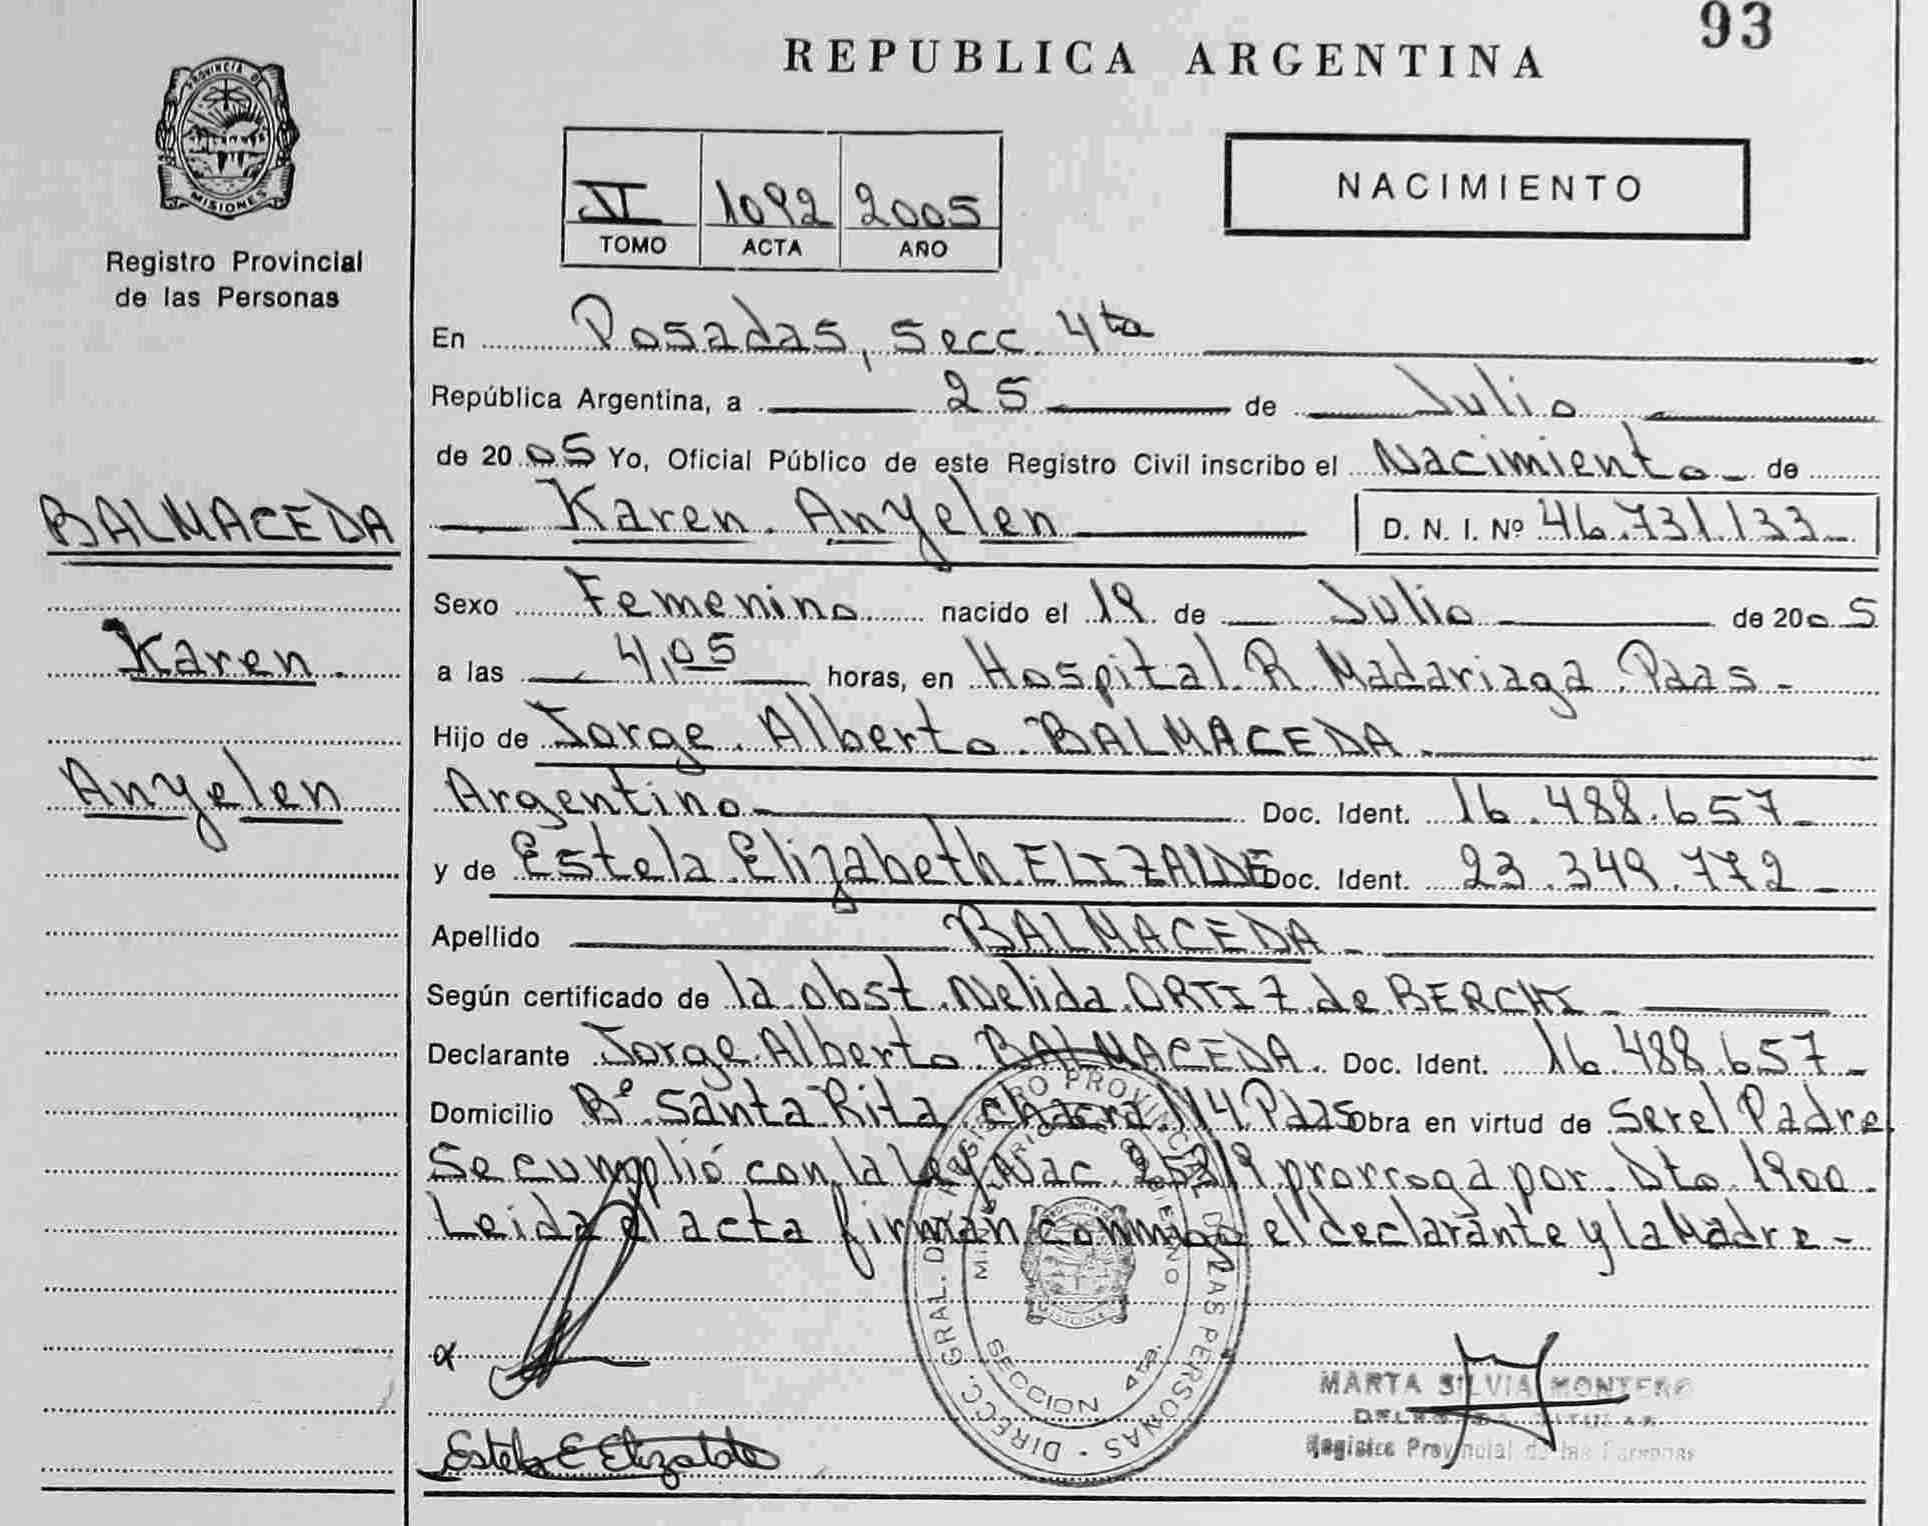 93
REPUBLICA ARGENTINA
PROVINCIA DE
MISIONES
Registro Provincial
de las Personas
NACIMIENTO
II 1092 2005
TOMO ACTA AÑO
En Posadas, Secc. 4ta
República Argentina, a 25 de Julio
de 2005 Yo, Oficial Público de este Registro Civil inscribo el Nacimiento de
Karen Anyelen D. N. I. Nº 46.731.133
BALMACEDA
Karen
Anyelen
Sexo Femenino nacido el 19 de Julio de 2005
a las 4,05 horas, en Hospital R. Madariaga Pdas
Hijo de Jorge Alberto BALMACEDA
Argentino Doc. Ident. 16.488.657
y de Estela Elizabeth ELIZALDE Doc. Ident. 23.349.772
Apellido BALMACEDA
Según certificado de la obst. Nelida ORTIZ de BERCHI
Declarante Jorge Alberto BALMACEDA. Doc. Ident. 16.488.657
Domicilio Bº Santa Rita chacra 114 Pdas Obra en virtud de Ser el Padre
Se cumplió con la Ley Nac. 25819 prorroga por Dto. 1900.
Leida el acta firman conmigo el declarante y la Madre
DIRECC. GRAL. DEL REGISTRO PROVINCIAL DE LAS PERSONAS
MINISTERIO DE GOBIERNO
SECCION 4ta.
MARTA SILVIA MONTERO
DELEGADA TITULAR
Registro Provincial de las Personas
Estela E Elizalde